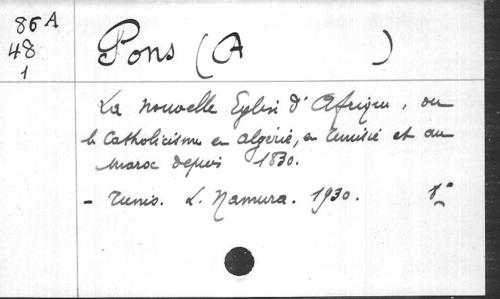 86 A
48
1
Pons (A )
La nouvelle Eglise d'Afrique, ou
le Catholicisme en Algérie, en Tunisie et au
Maroc depuis 1830.
- Tunis. L. Namura. 1930. 8°